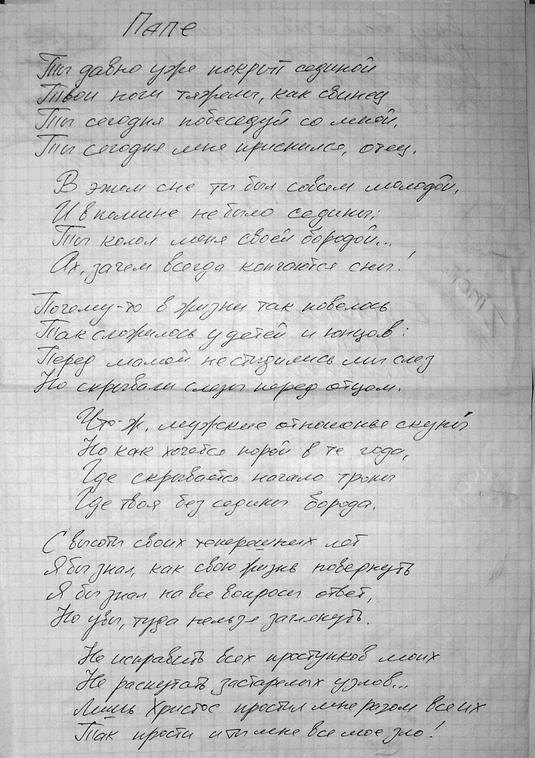 Папе
Ты давно уже покрыт сединой
Твои ноги тяжелы, как свинец
Ты сегодня побеседуй со мной,
Ты сегодня мне приснился, отец.
В этом сне ты был совсем молодой,
И в помине не было седины;
Ты колол меня своей бородой...
Ах, зачем всегда кончаются сны!
Почему-то в жизни так повелось
Так сложилось у детей и юнцов:
Перед мамой не стыдились мы слез
Но скрывали слезы перед отцом.
Что-ж, мужские отношенья скупы
Но как хочется порой в те года,
Где скрывается начало тропы
Где твоя без седины борода.
С высоты своих теперешних лет
Я бы знал, как свою жизнь повернуть
Я бы знал на все вопросы ответ,
Но увы, туда нельзя заглянуть.
Не исправить всех проступков моих
Не распутать застарелых узлов...
Лишь Христос простил мне разом все их
Так прости и ты мне все мое зло!